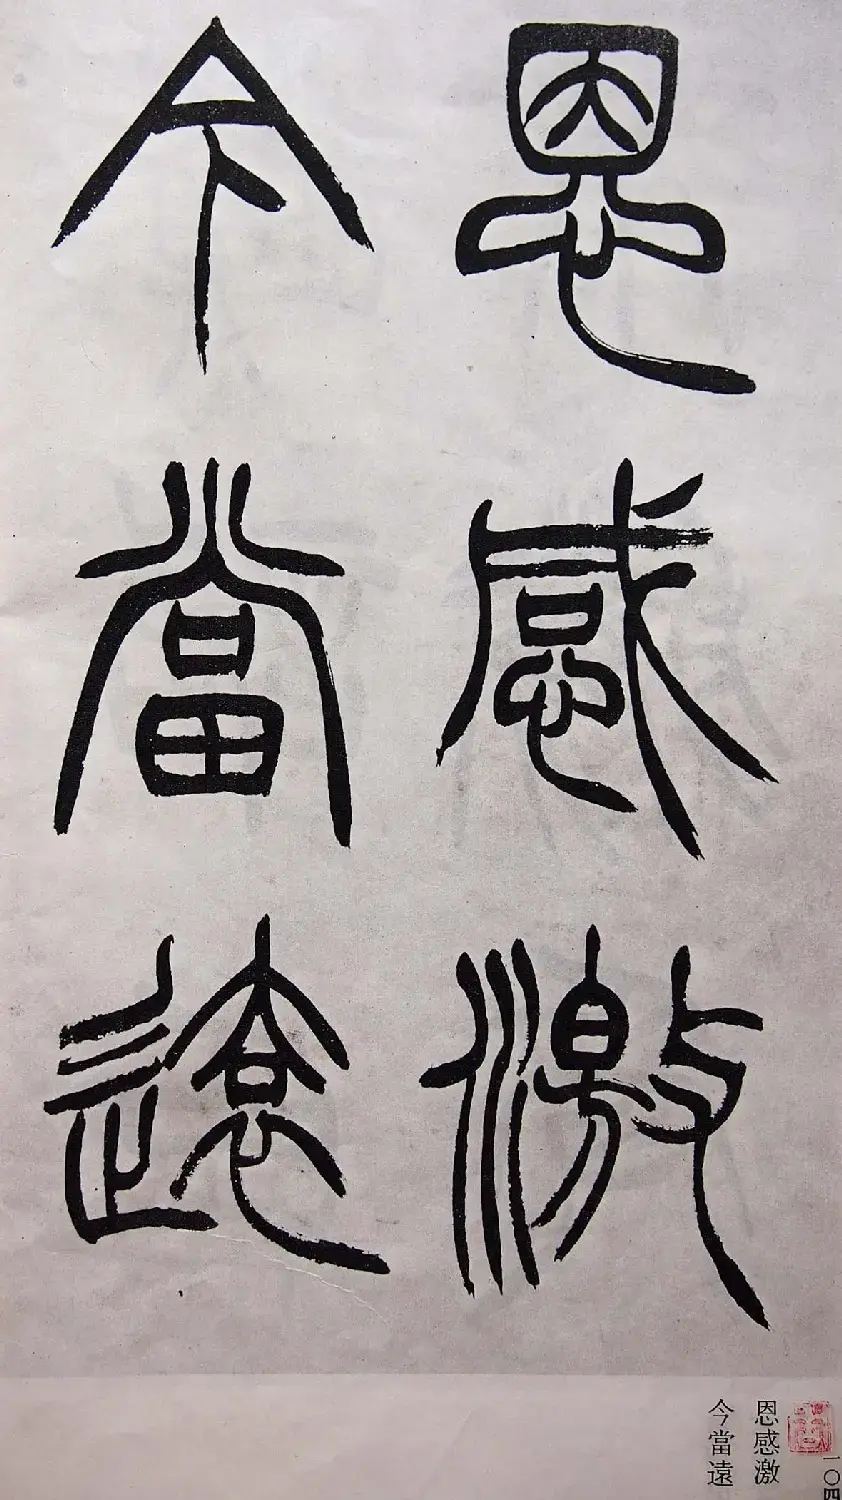 恩感激
今當遠
恩感激
今當遠
一〇四